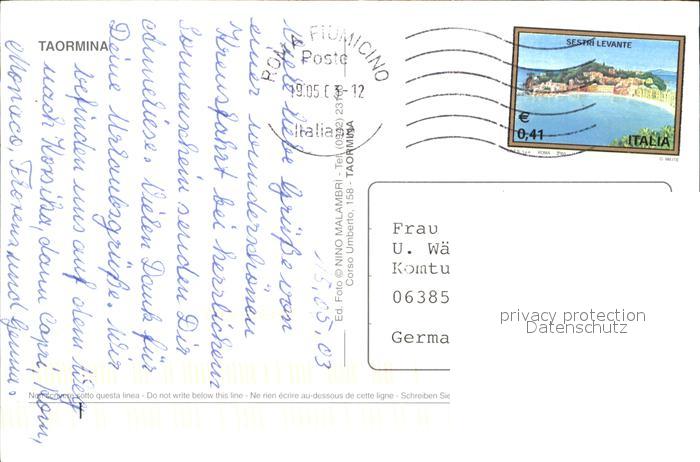 TAORMINA
ROMA FIUMICINO
Poste
19.05.03-12
Italiane
SESTRI LEVANTE
€
0,41
ITALIA
15.05.03
Viele liebe Grüße von
einer wunderschönen
Kreuzfahrt bei herrlichem
Sonnenschein senden Dir
Vielen Dank für
Deine Urlaubsgrüße. Wir
befinden uns auf dem Weg
nach Korsika, dann Capri, Rom,
Monaco, Florenz und Genua.
Ed. Foto © NINO MALAMBRI - Tel.
Corso Umberto, 158 - TAORMINA
Frau
U. Wä
Komtu
06385
Germa
privacy protection
Datenschutz
sotto questa linea - Do not write below this line - Ne rien écrire au-dessous de cette ligne - Schreiben Sie